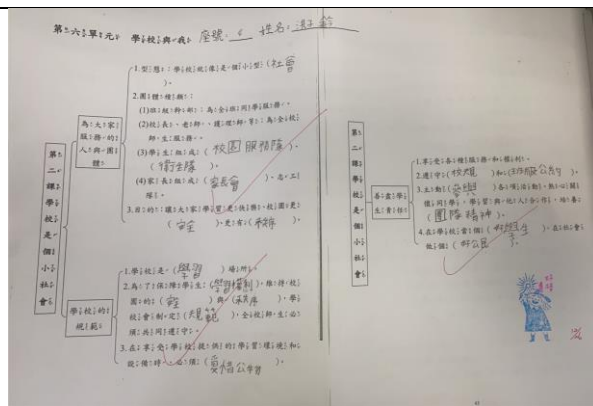 第六單元 學校與我 座號: 6 姓名:
第二課學校是個小社會
為大家服務的人與團體
1.型態:學校就像是一個小型(社會
)。
2.團體種類:
(1)班級幹部:為全班同學服務。
(2)校長、老師、護理師等:為全校
師生服務。
(3)學生組成:(校園服務隊)、
(衛生隊)。
(4)家長組成:(家長會)、志工
隊。
3.目的:讓大家學習更快樂、校園更
(安全)、更有(秩序)。
學校的規範
1.學校是(學習)場所。
2.為了保障學生(學習權利)、維持校
園的(安全)與(秩序),學
校會制定(規範),全校師生必
須共同遵守。
3.在享受學校提供的學習環境和
設備時,必須(愛惜公物)。
第二課學校是個小社會
善盡學生責任
1.享受各種服務和權利。
2.遵守(校規)和(班級公約)。
3.主動(參與)各項活動,熱心關
懷同學,學習與他人合作,培養
(團隊精神)。
4.在學校當個(好學生),在社會
做個(好公民)。